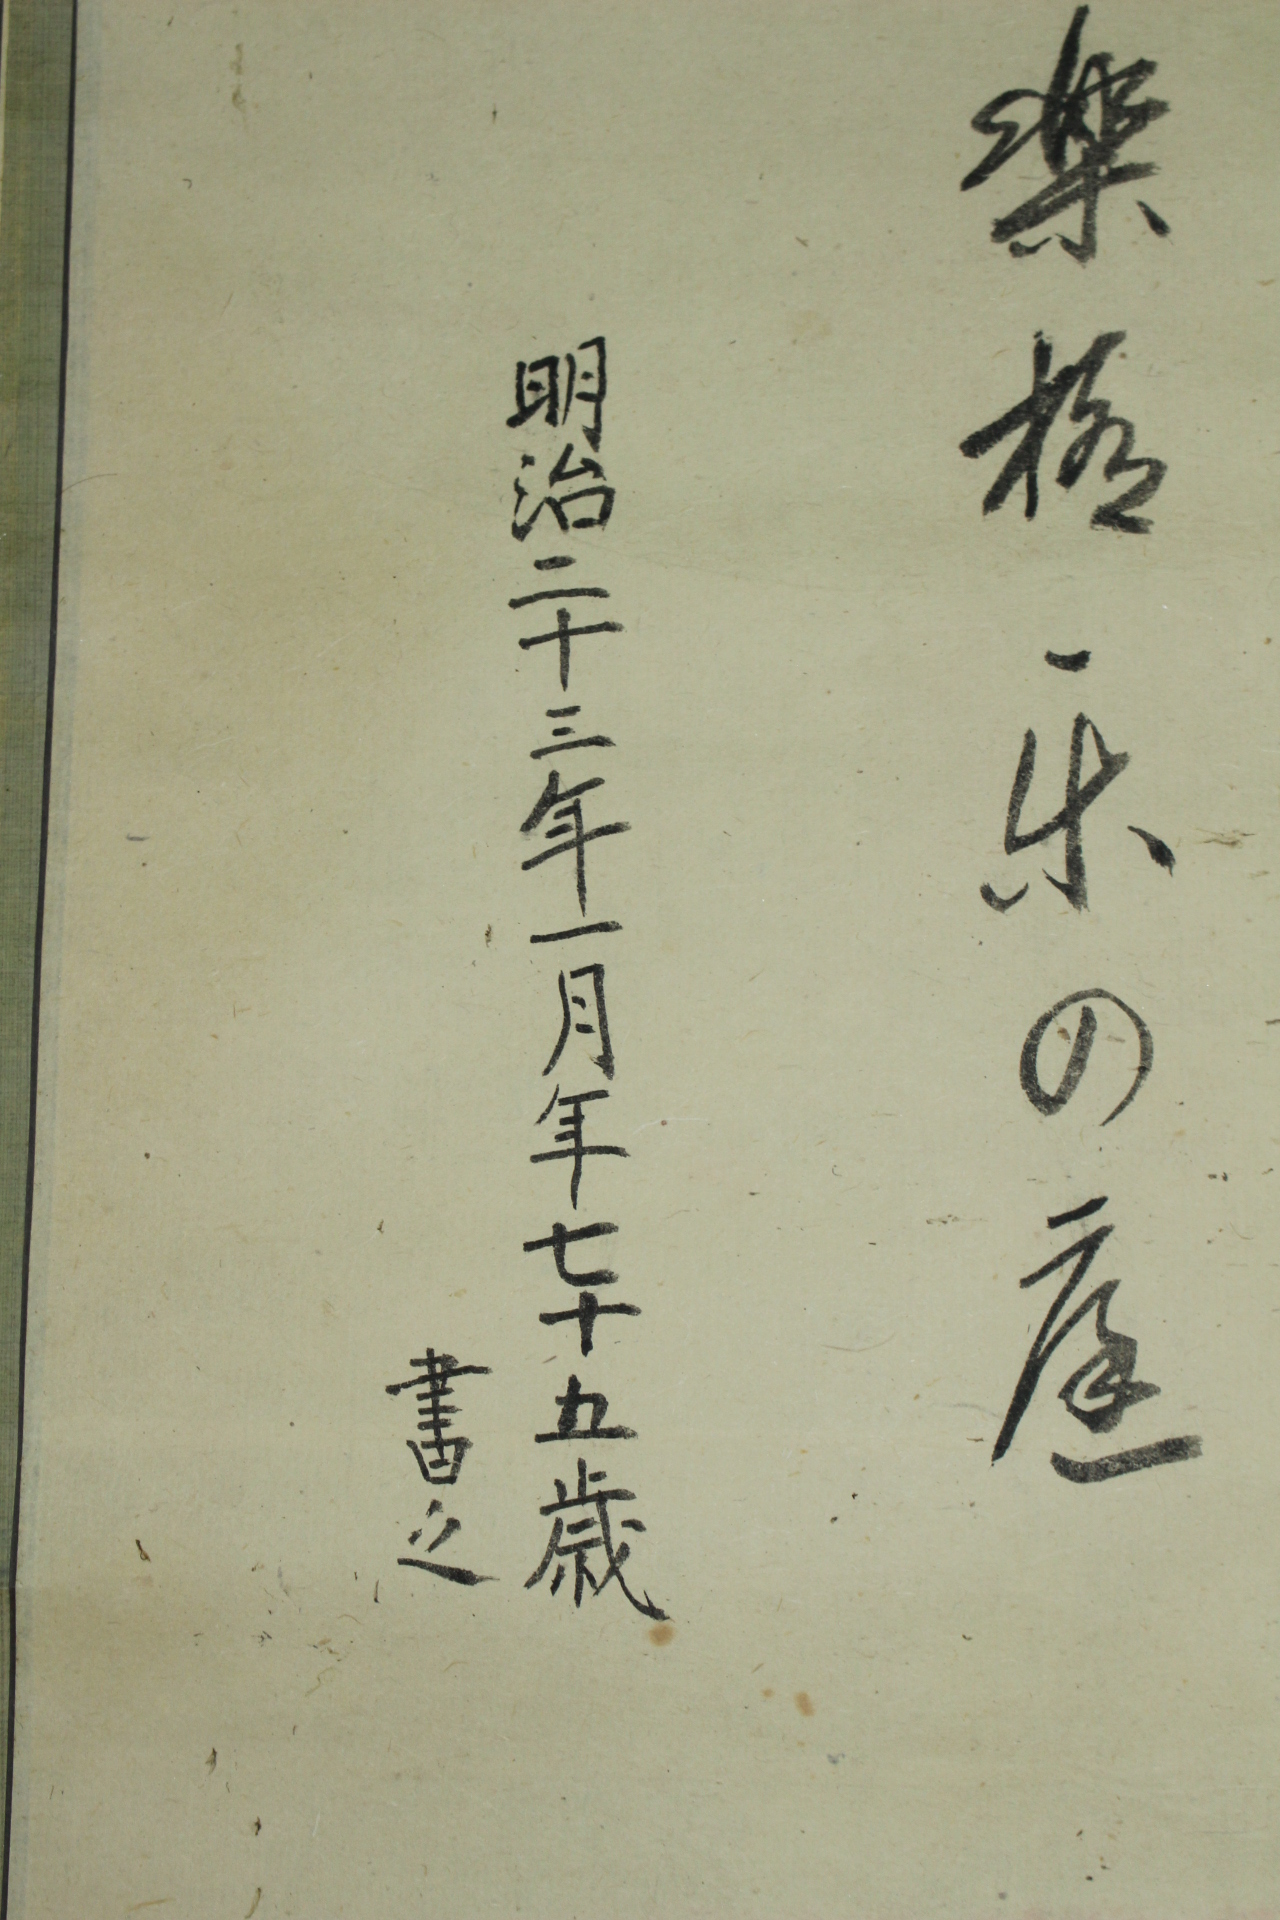 楽極平の庭
明治二十三年一月年七十五歳
書之